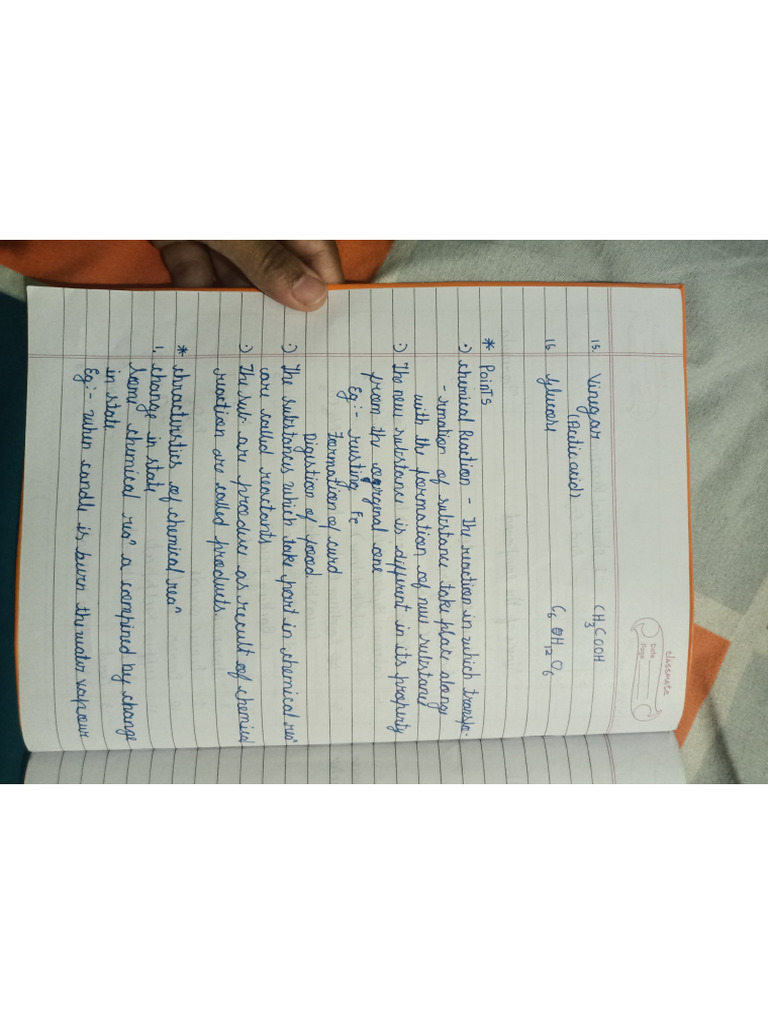 classmate
Date
Page
15. Vinegar CH3COOH
(Acetic acid)
16 Glucose C6H12O6
* Points
•) Chemical Reaction - The reaction in which transfo-
-rmation of substance take place along
with the formation of new substance
•) The new substance is different in its property
from the orginal one
Eg:- rusting Fe
Formation of curd
Digestion of food
•) The substances which take part in chemical rean
are called reactants
•) The sub. are produce as result of chemical
reaction are called products.
* characteristics of chemical rean
1. change in state
Some chemical rean a compined by change
in state
Eg:- when candle is burn the water vapour